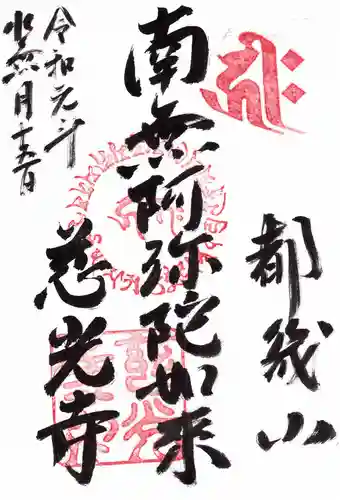 都幾山
南無阿弥陀如来
慈光寺
令和元年
水無月十五日